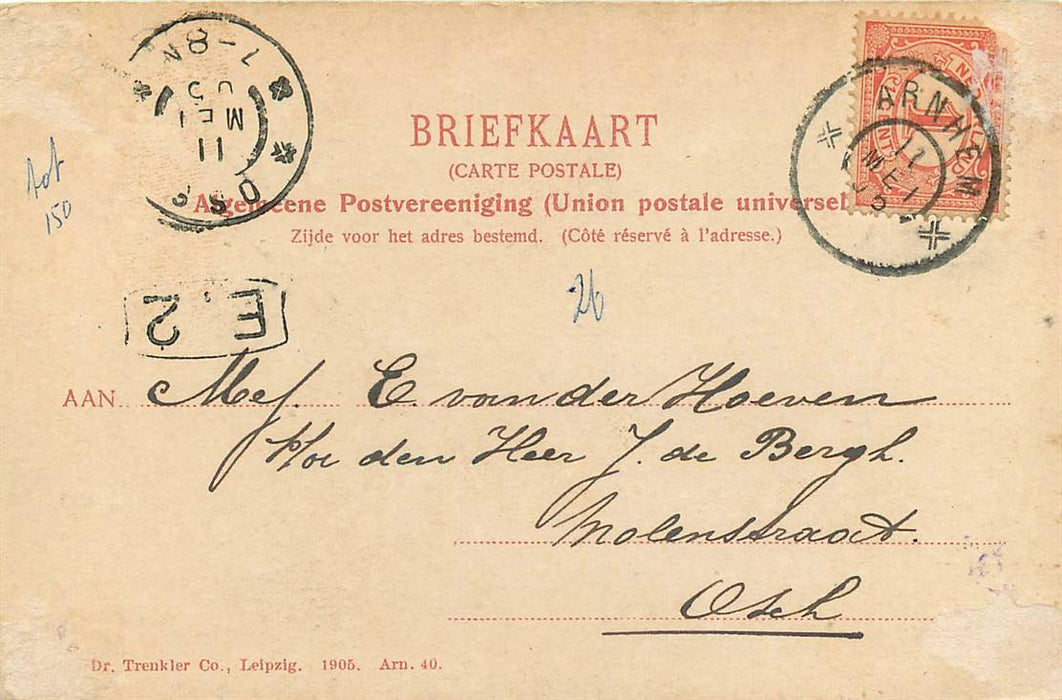 BRIEFKAART
(CARTE POSTALE)
Algemeene Postvereeniging (Union postale universel
Zijde voor het adres bestemd. (Côté réservé à l'adresse.)
OSS
11
MEI
05
7-8N
ARNHEM
11
MEI
tot
150
26
E.2
AAN Mej. E. van der Hoeven
den Heer J. de Bergh.
Molenstraat.
Osch
Dr. Trenkler Co., Leipzig. 1905. Arn. 40.